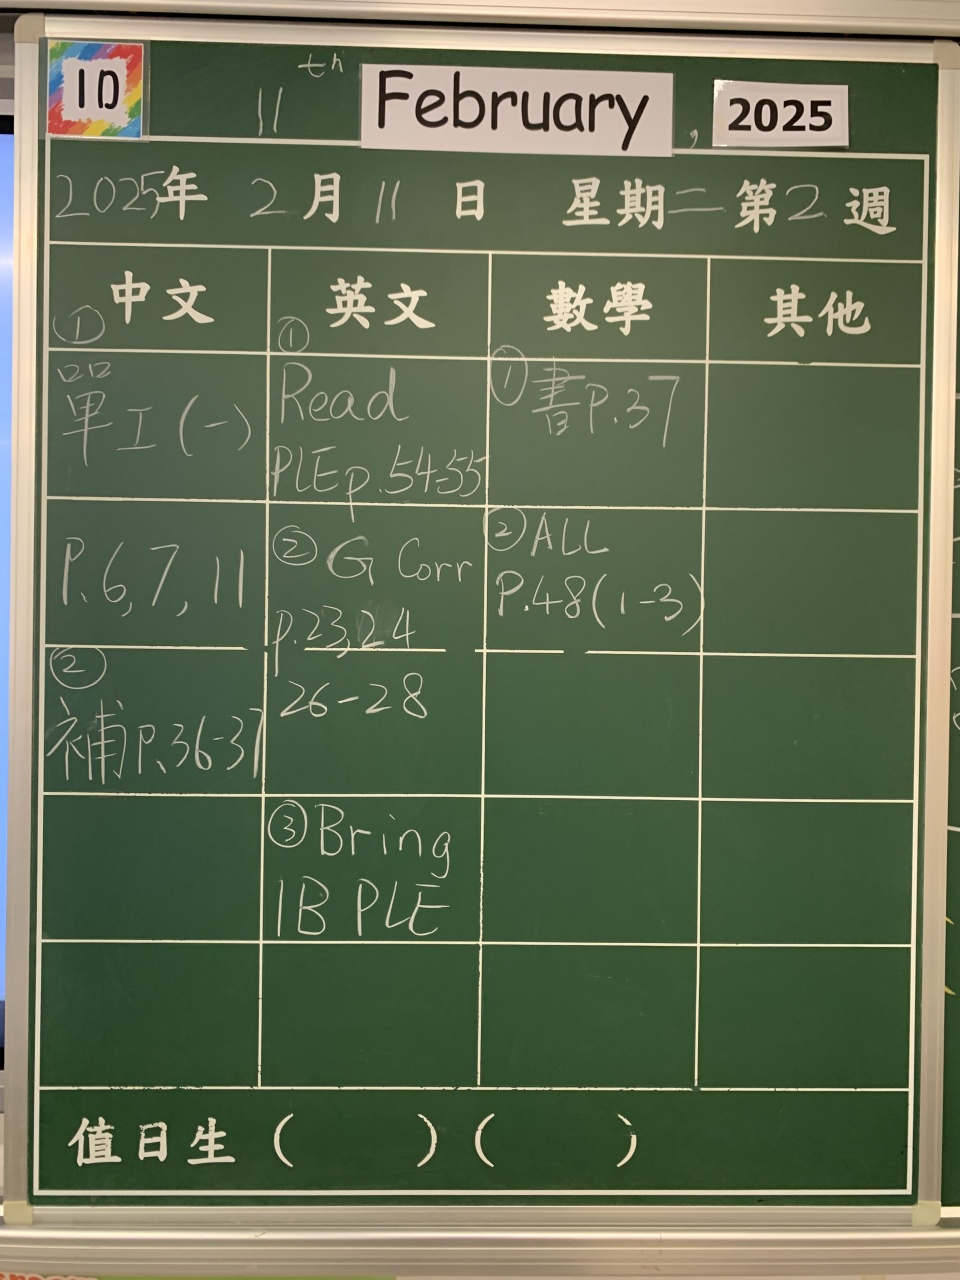 1D
11th February, 2025
2025年 2月11日 星期二第2週
中文 英文 數學 其他
①
單工(一)
P.6,7,11
②
補P.36-37
①
Read
PLE p.54-55
② G Corr
p.23,24
26-28
③ Bring
1B PLE
① 書P.37
② ALL
P.48(1-3)
值日生 ( ) ( )